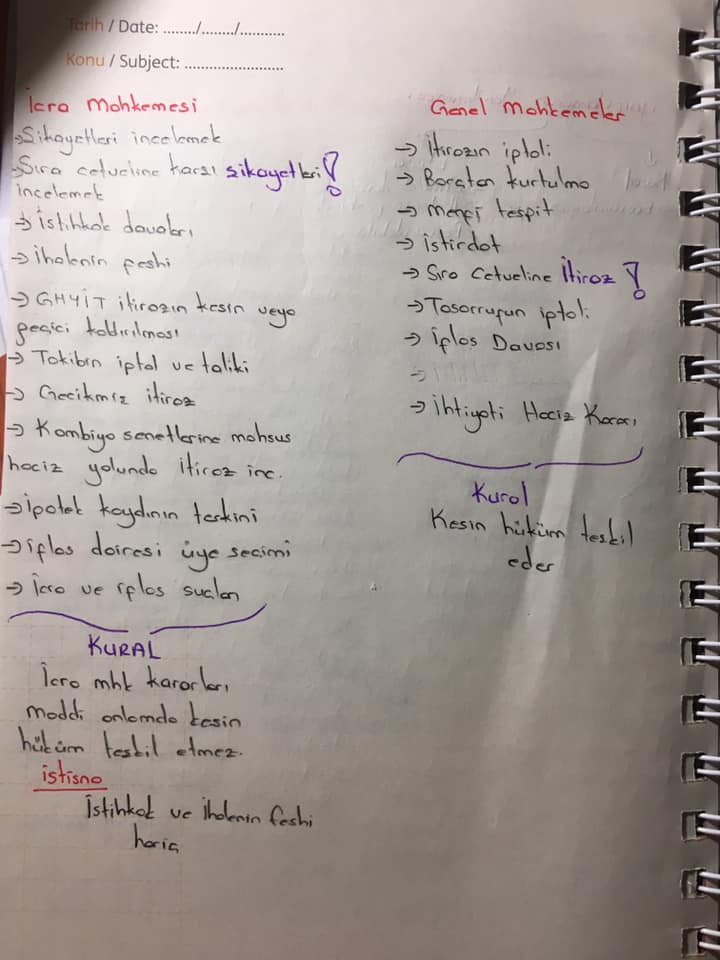 Tarih / Date: ......../......../...........
Konu / Subject: ........................
İcra Mahkemesi
→Şikayetleri incelemek
→Sıra cetveline karşı şikayetleri!
incelemek
→ İstihkak davaları
→ ihalenin feshi
→ GHYİT itirazın kesin veya
geçici kaldırılması
→ Takibin iptal ve taliki
→ Gecikmiş itiraz
→ Kambiyo senetlerine mahsus
haciz yolunda itiraz inc.
→ipotek kaydının terkini
→iflas dairesi üye seçimi
→ İcra ve iflas suçları
KURAL
İcra mhk kararları
maddi anlamda kesin
hüküm teşkil etmez.
istisna
İstihkak ve ihalenin feshi
hariç
Genel Mahkemeler
→ İtirazın iptali
→ Borçtan kurtulma
→ menfi tespit
→ istirdat
→ Sıra Cetveline İtiraz !
→Tasarrufun iptali
→ İflas Davası
→ İhtiyati Haciz Kararı
Kural
Kesin hüküm teşkil
eder